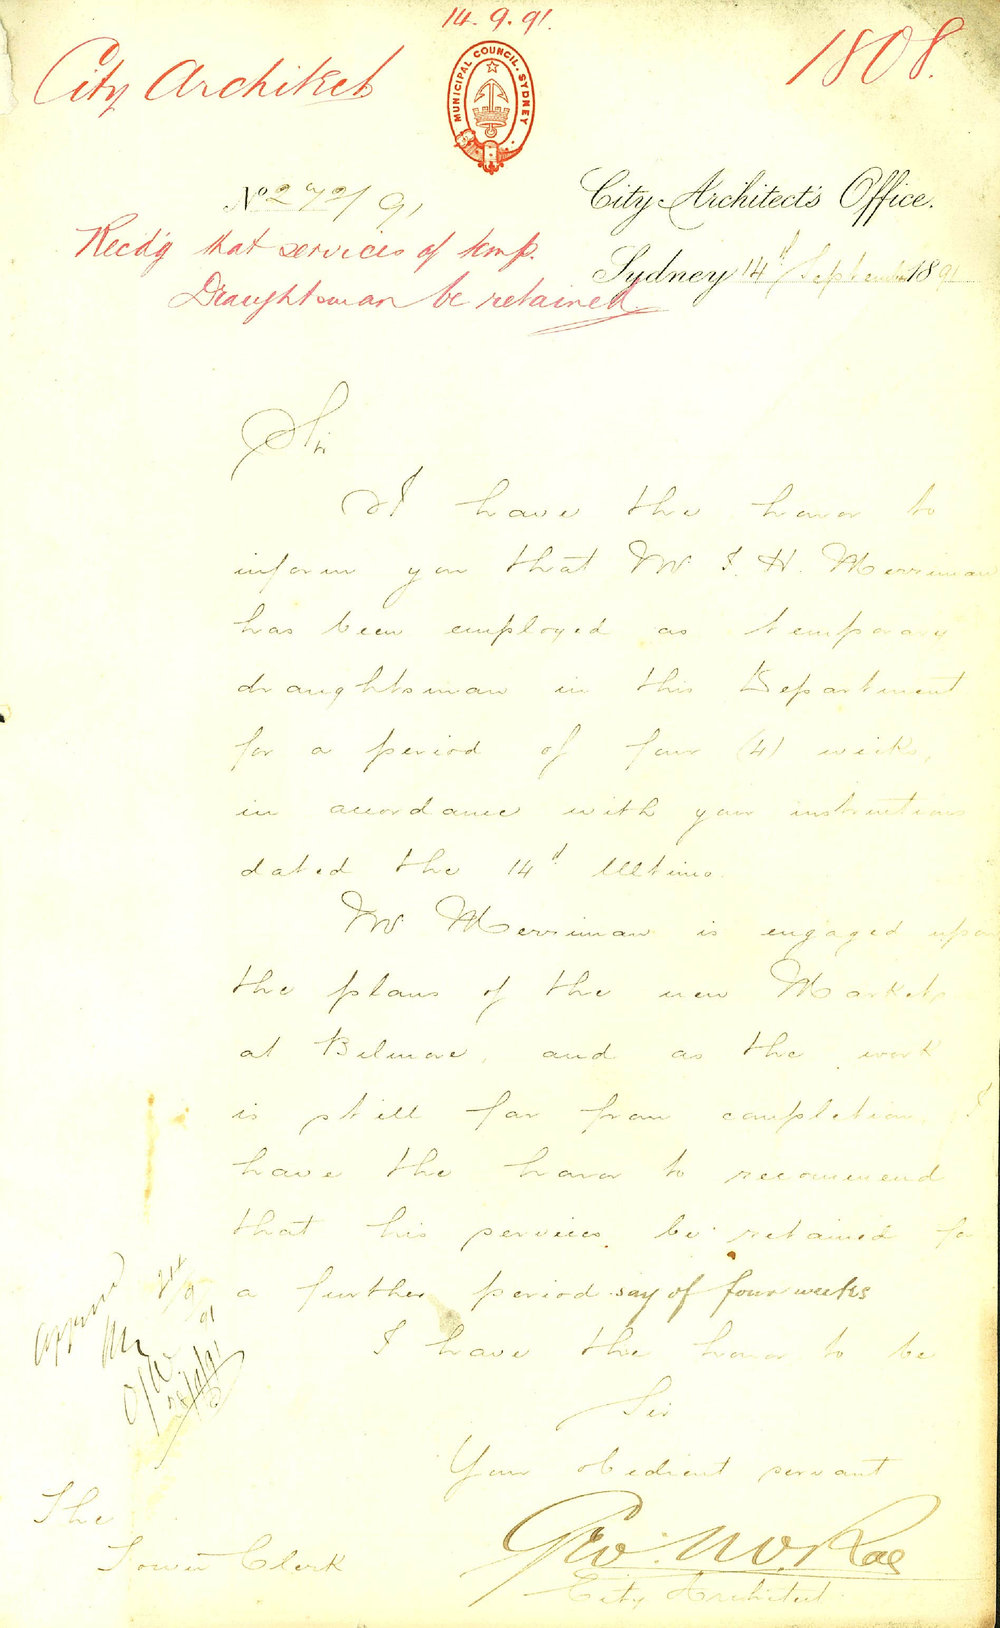 14.9.91.
City Architect
1808.
MUNICIPAL COUNCIL. SYDNEY
City Architect's Office.
No 272/91
Sydney 14th September 1891
Recdg that services of temp.
Draughtsman be retained
Sir
I have the honor to
inform you that Mr J. H. Merriman
has been employed as temporary
draughtsman in this Department
for a period of four (4) weeks,
in accordance with your instructions
dated the 14th Ultimo.
Mr Merriman is engaged upon
the plans of the new Markets
at Belmore, and as the work
is still far from completion, I
have the honor to recommend
that his services be retained for
a further period say of four weeks
I have the honor to be
Sir
Your obedient servant
Geo. McRae
City Architect
The
Town Clerk
Approved